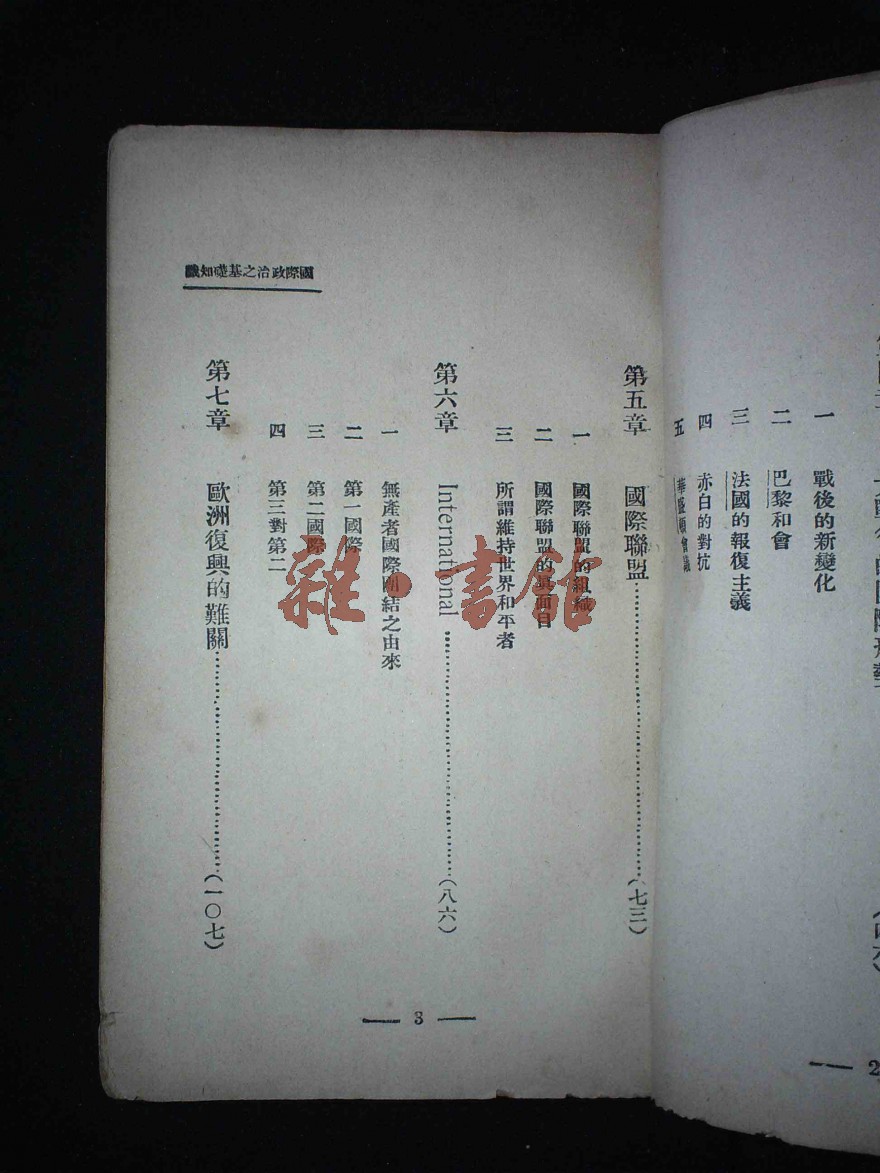 一 戰後的新變化
二 巴黎和會
三 法國的報復主義
四 赤白的對抗
五 華盛頓會議
2
國際政治之基礎知識
第五章 國際聯盟……(七三)
一 國際聯盟的組織
二 國際聯盟的眞面目
三 所謂維持世界和平者
第六章 International……(八六)
一 無產者國際團結之由來
二 第一國際
三 第二國際
四 第三對第二
第七章 歐洲復興的難關……(一〇七)
— 3 —
雜·書館